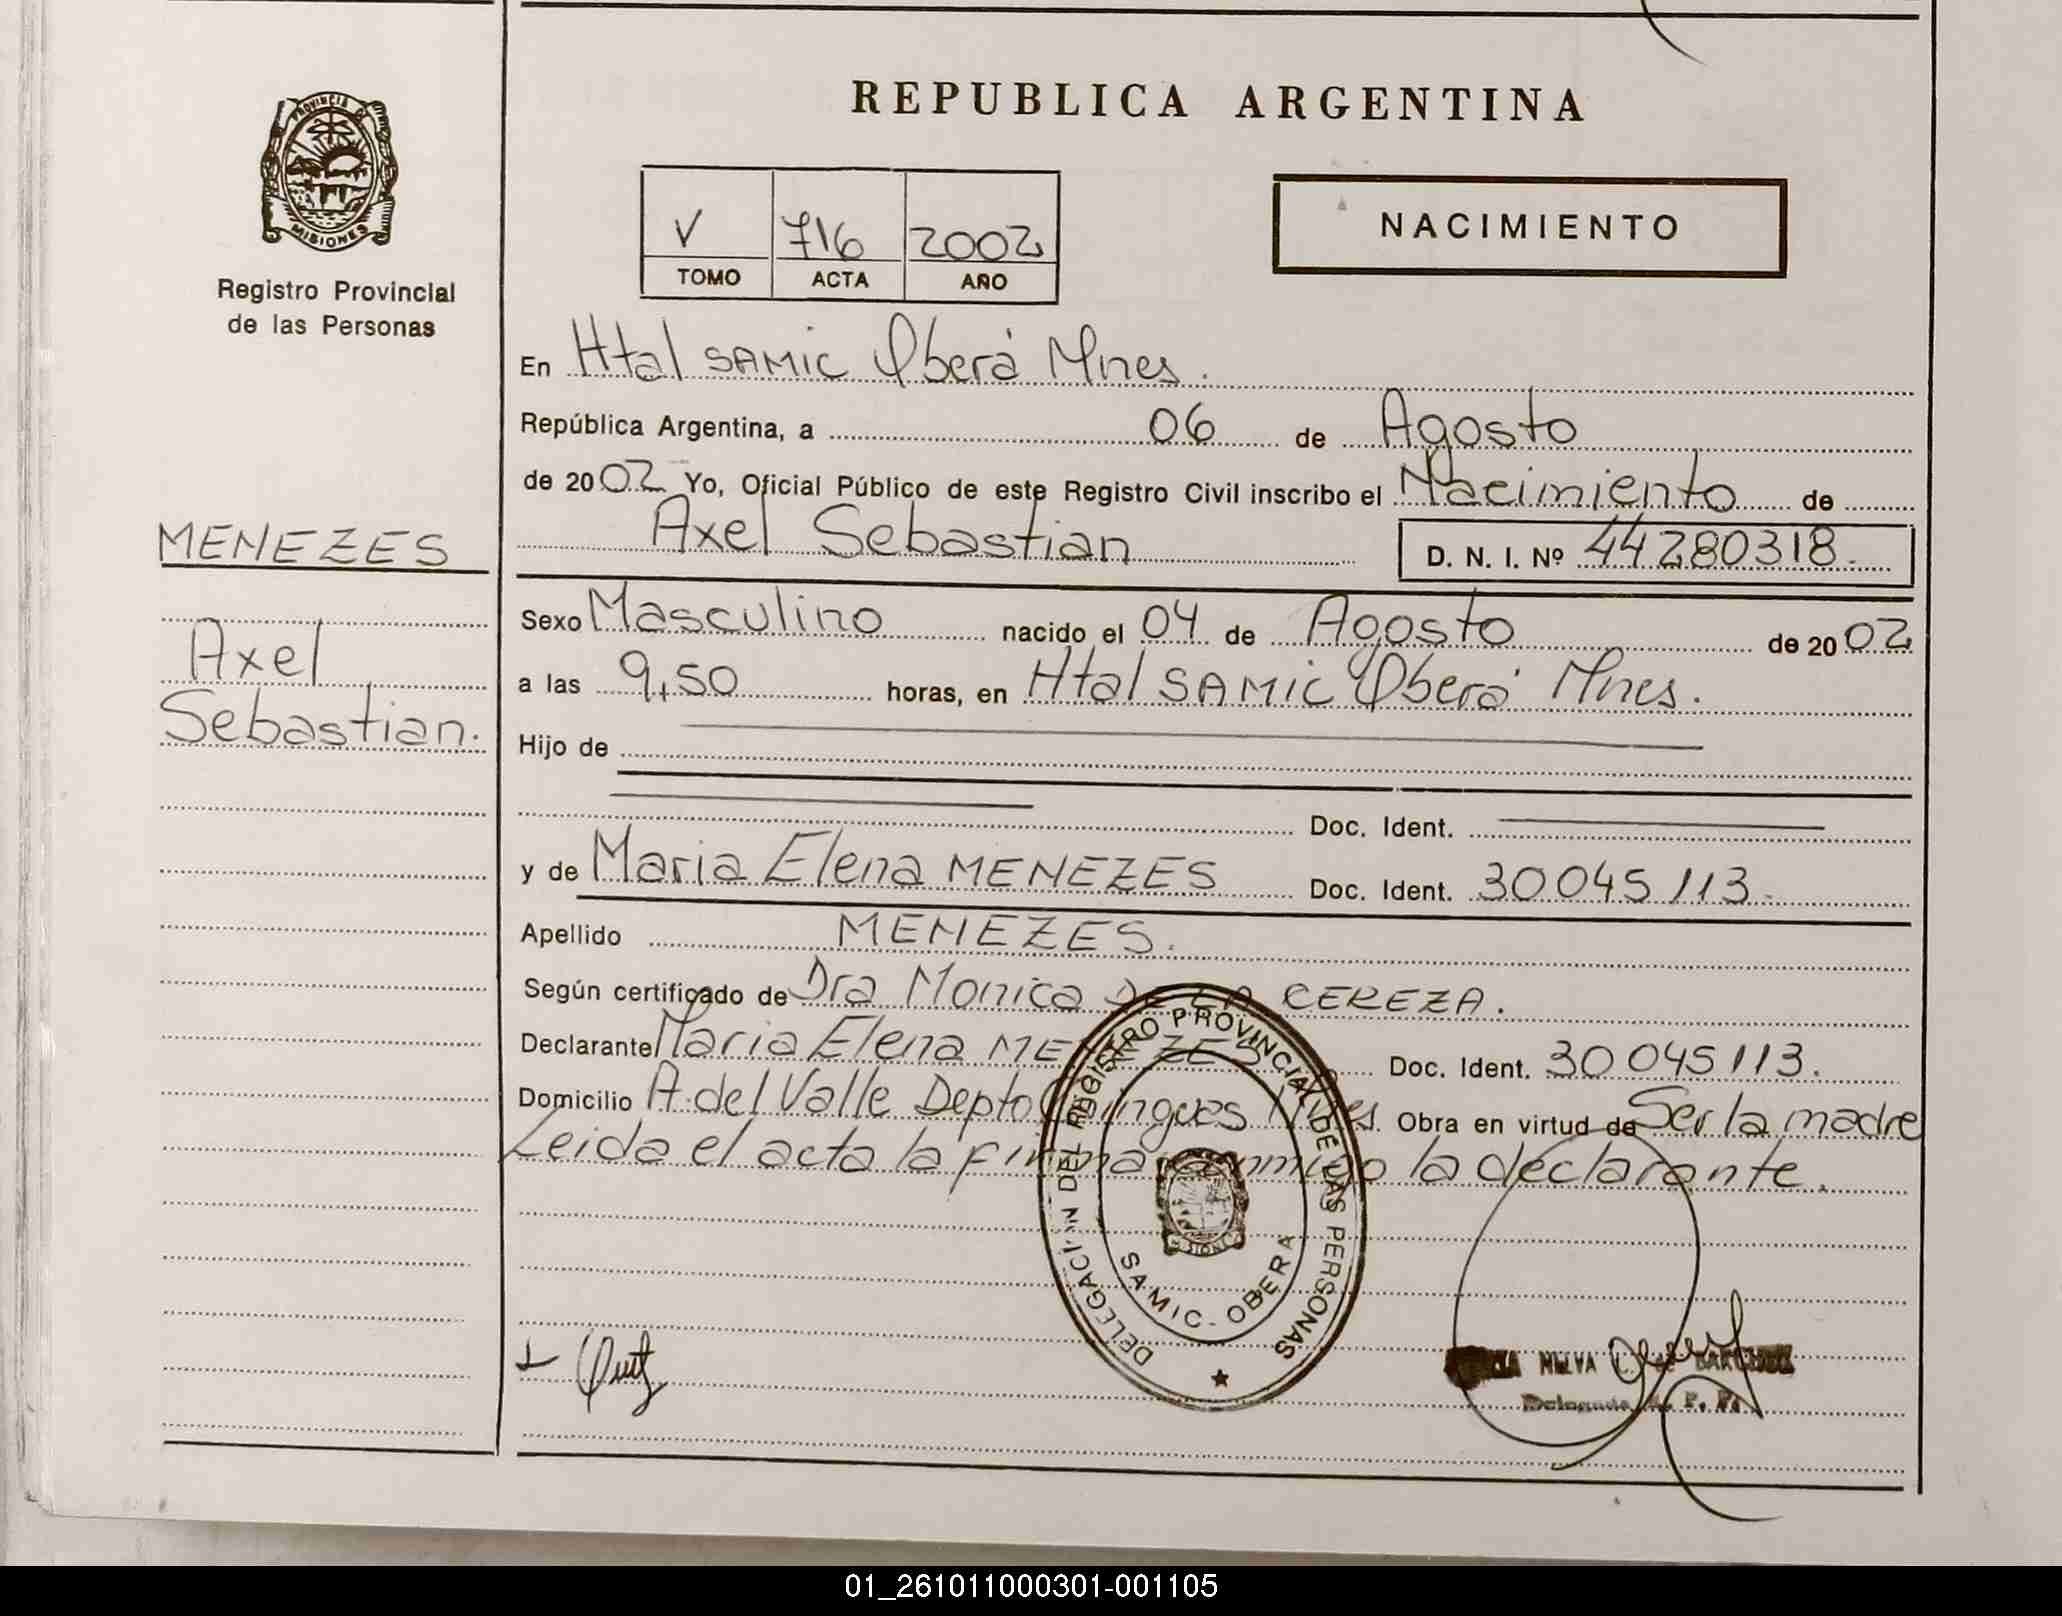 REPUBLICA ARGENTINA
PROVINCIA DE
MISIONES
Registro Provincial
de las Personas
V 716 2002
TOMO ACTA AÑO
NACIMIENTO
En Htal SAMIC Oberá Mnes.
República Argentina, a 06 de Agosto
de 2002 Yo, Oficial Público de este Registro Civil inscribo el Nacimiento de
Axel Sebastian D. N. I. Nº 44280318.
MENEZES
Axel
Sebastian.
Sexo Masculino nacido el 04 de Agosto de 2002
a las 9,50 horas, en Htal SAMIC Oberá Mnes.
Hijo de
Doc. Ident.
y de Maria Elena MENEZES Doc. Ident. 30045113.
Apellido MENEZES.
Según certificado de Dra Monica DE LA CEREZA.
Declarante Maria Elena MENEZES Doc. Ident. 30045113.
Domicilio A. del Valle Depto Mnes. Obra en virtud de Ser la madre
Leida el acta la firma conmigo la declarante.
DELEGACION DEL REGISTRO PROVINCIAL DE LAS PERSONAS
SAMIC - OBERA
MELVA
01_261011000301-001105